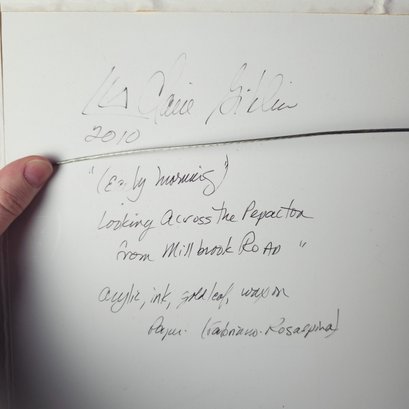 Claire Giblin
2010
"(Early Morning)
Looking Across the Pepacton
from Millbrook Road"
acrylic, ink, gold leaf, wax on
Paper (Fabriano-Rosaspina)